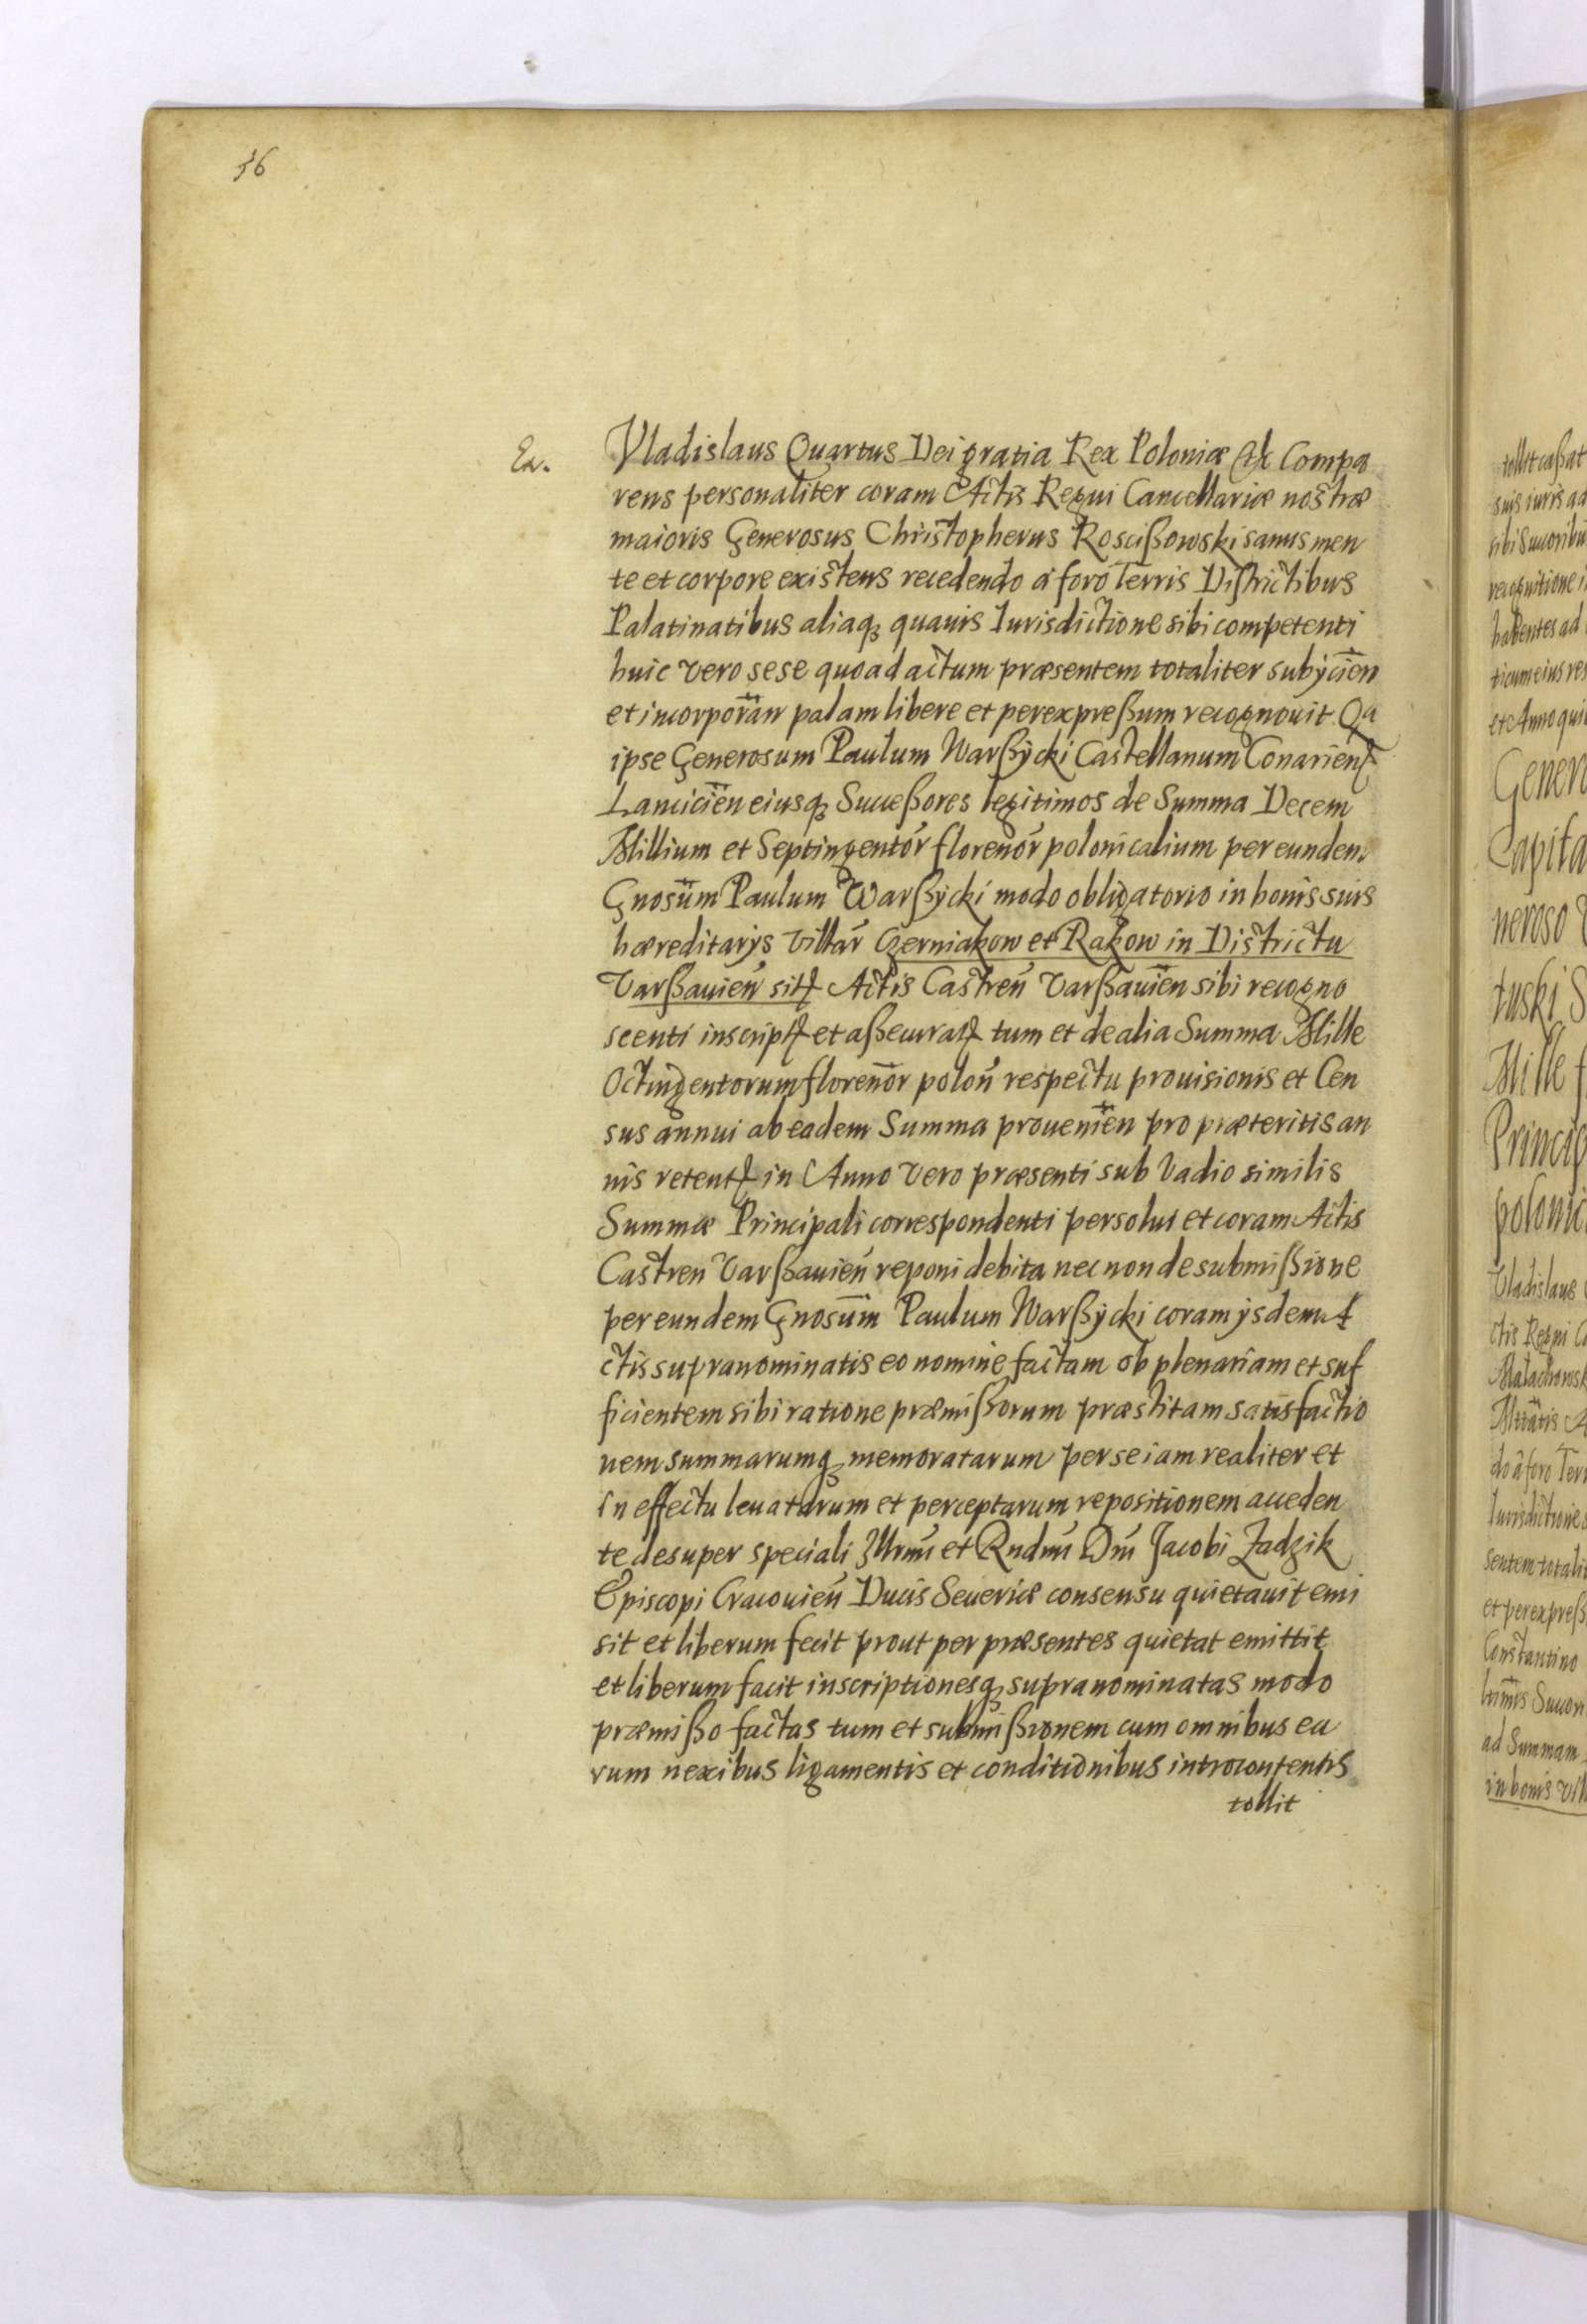 36
Ex.
Vladislaus Quartus Dei gratia Rex Poloniæ &c Compa
rens personaliter coram Actis Regni Cancellariæ nostræ
maioris Generosus Christopherus Roscißowski sanus men
te et corpore existens recedendo à foro Terris Districtibus
Palatinatibus aliaq3 quauis Iurisdictione sibi competenti
huic vero sese quo ad actum præsentem totaliter subÿcien̄
et incorporan̄ palam libere et per expreßum recognouit Qa
ipse Generosum Paulum Warßÿcki Castellanum Conarien̄
Lancicien̄ eiusq3 Sucesßores legitimos de Summa Decem
Millium et Septingentor̄ florenor̄ polonicalium per eundem
Gnosum̄ Paulum Warßÿcki modo obligatorio in bonis suis
hæreditarÿs Villar̄ Czerniakow et Rakow in Districtu
Varßauien̄ sit Actis Castren̄ Varßauien̄ sibi recogno
scenti inscript et aßecurat tum et de alia Summa Mille
Octingentorum florenor̄ polon̄ respectu prouisionis et Cen
sus annui ab eadem Summa prouenien̄ pro præteritis an
nis retent in Anno vero præsenti sub Vadio similis
Summæ Principali correspondenti persolui et coram Actis
Castren̄ Varßauien̄ reponi debita nec non de submißione
per eundem Gnosum̄ Paulum Warßÿcki coram ÿsdem A
ctis supranominatis eo nomine factam ob plenariam et suf
ficientem sibi ratione præmißorum præstitam satisfactio
nem summarumq3 memoratarum per se iam realiter et
in effectu leuatarum et perceptarum repositionem acceden
te desuper speciali Illrmi et Rndmi Dni Jacobi Zadzik
Episcopi Cracouien̄ Ducis Seueriæ consensu quietauit emi
sit et liberum fecit prout per præsentes quietat emittit
et liberum facit inscriptionesq3 supranominatas modo
præmißo factas tum et submißionem cum omnibus ea
rum nexibus ligamentis et conditionibus introcontentis
tollit
tollit caßat
suis iuris ad
sibi Sucoribu
recognitione i
habentes ad
ticum eius re
et Anno qui
Gener
Capita
neroso
tuski S
Mille f
Princip
polonic
Vladislaus
ctis Regni C
Malachowsk
Mttatis A
do à foro Terr
Iurisdictione
sentem totali
et per expreß
Constantino
timis Succor
ad Summam
in bonis vill